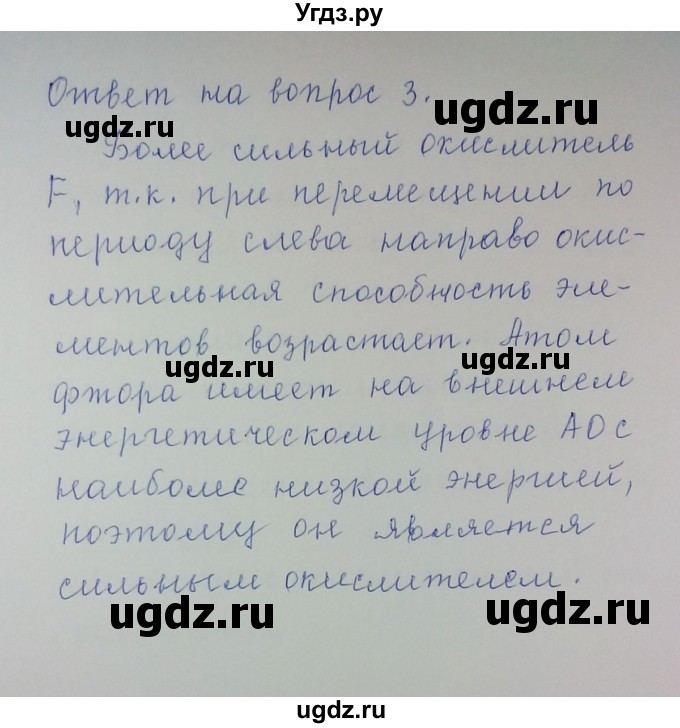 Угдз.ру
Ответ на вопрос 3.
ugdz.ru
ugdz.ru
Более сильный окислитель
F, т.к. при перемещении по
периоду слева направо окис-
лительная способность эле-
ментов возрастает. Атом
ugdz.ru
ugdz.ru
фтора имеет на внешнем
энергетическом уровне АО с
наиболее низкой энергией,
поэтому он является
сильным окислителем.
ugdz.ru
ugdz.ru
ugdz.ru